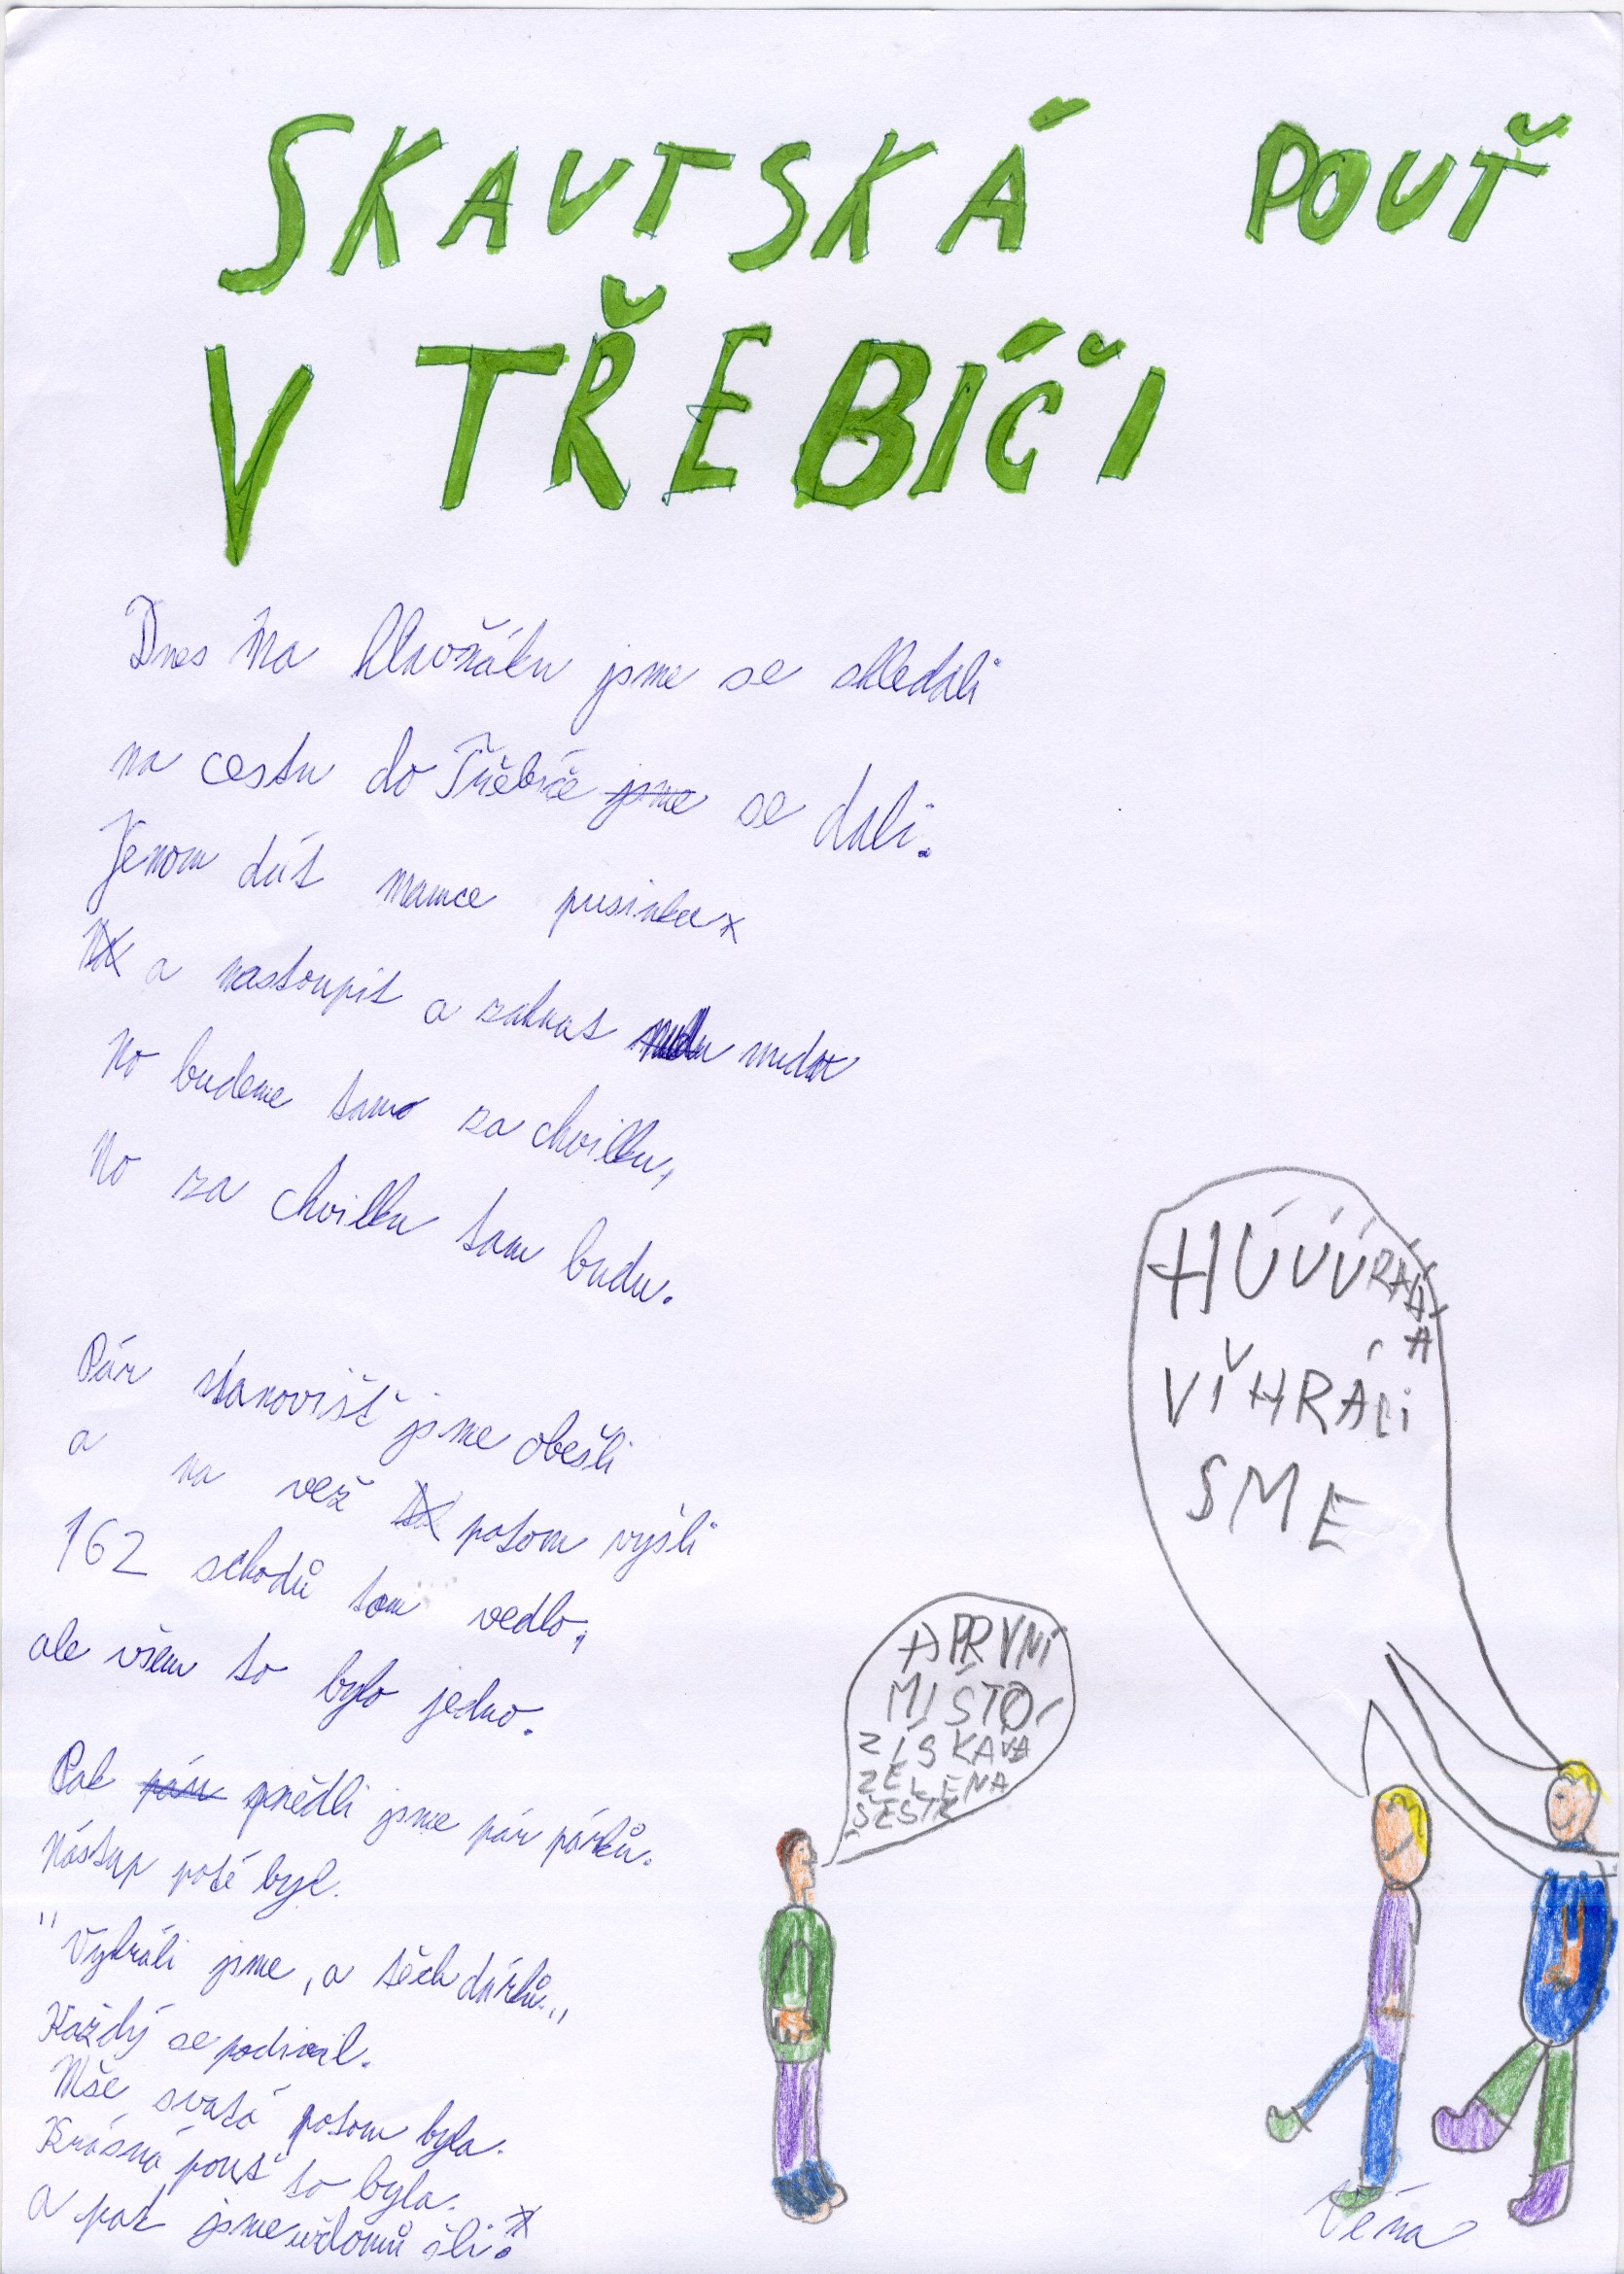 SKAUTSKÁ POUŤ
V TŘEBÍČI
Dnes na hlavňáku jsme se shledali
na cestu do Třebíče jsme se dali.
Jenom dát mamce pusinku
a nastoupit a zahnat nudu
No budeme tam za chvilku,
No za chvilku tam budu.
Pár stanovišť jsme obešli
a na vež potom vyšli
162 schodů tam vedlo,
ale všem to bylo jedno.
Pak snědli jsme pár párků.
Nástup poté byl.
"Vyhráli jsme, a těch dárků"
Každý se podivil.
Mše svatá potom byla.
Krásná pouť to byla.
a pak jsme už domů šli.
HÚÚÚRÁÁÁ
A
VÍHRÁLI
SME
A PRVNÍ
MÍSTO
ZÍSKÁVÁ
ZELENÁ
ŠESTK
Véna